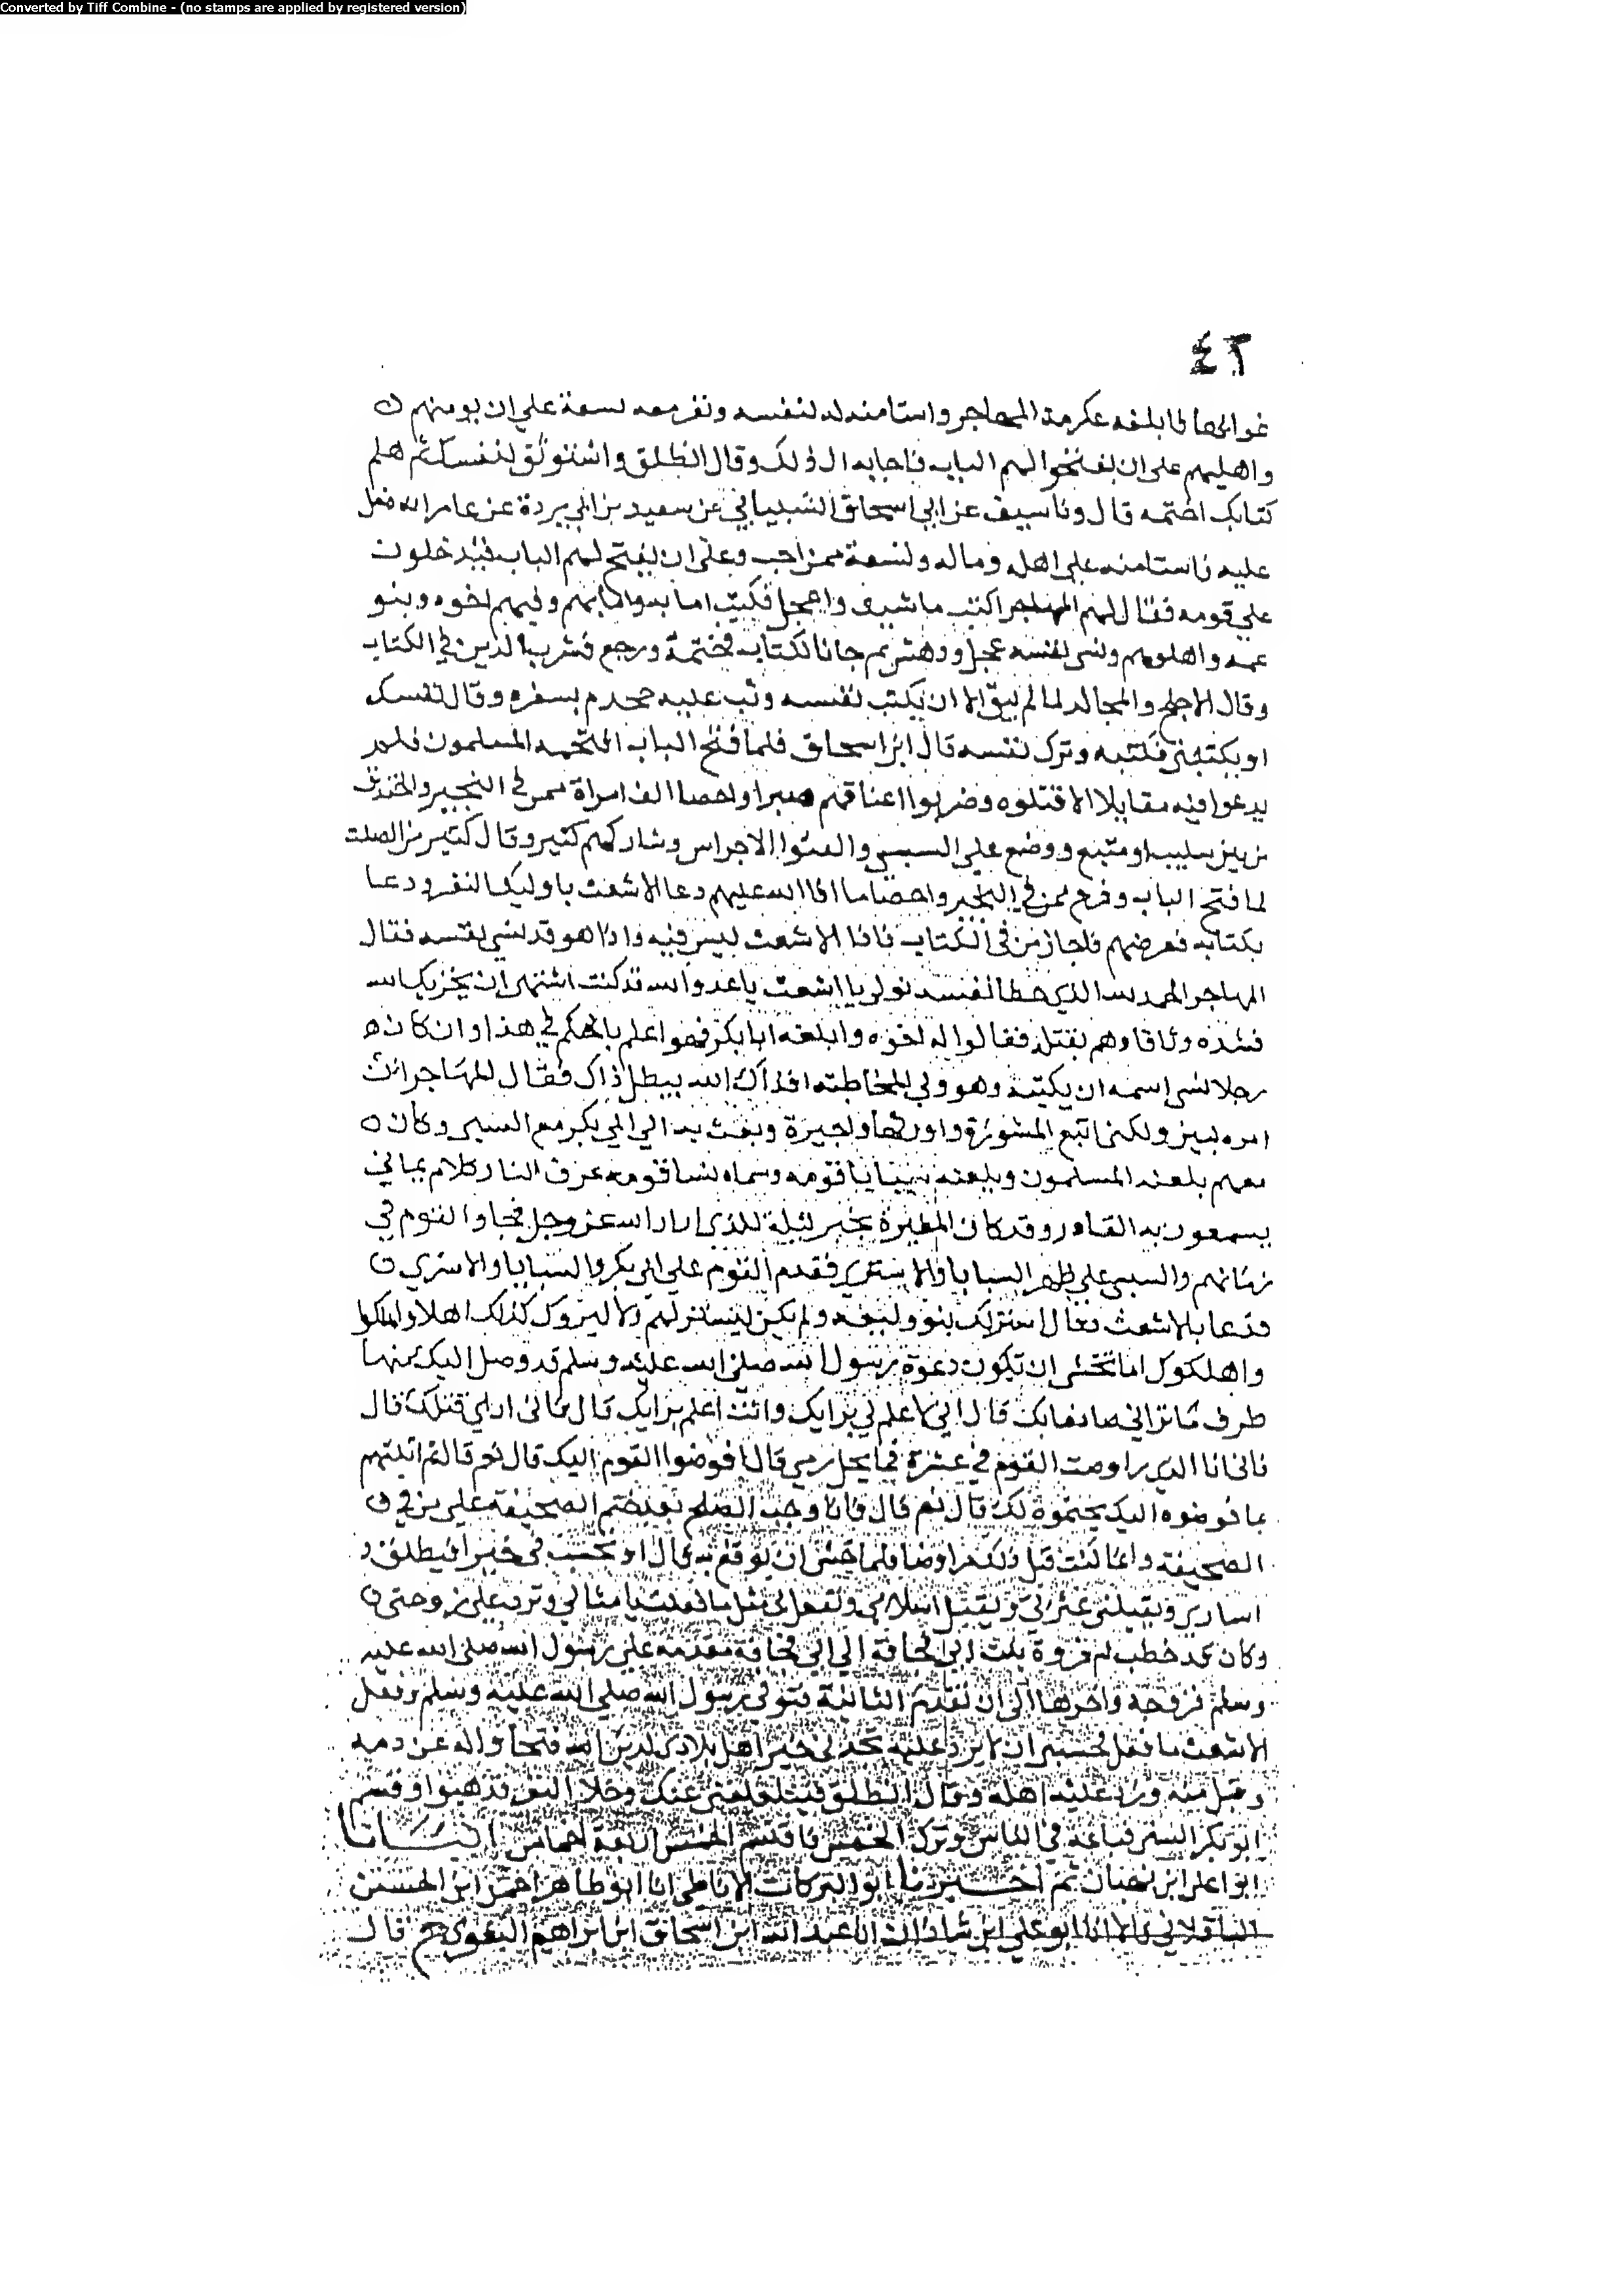 Converted by Tiff Combine - (no stamps are applied by registered version)
٤٢
عكرمة المهاجر واستامنه له لنفسه ونفر معه تسعة على ان يومنهم
واهليهم على ان يفتحوا لهم الباب فاجابه الى ذلك وقال انطلق واستوثق لنفسك ثم هلم
كتابك اختمه قال ونا سيف عن ابي اسحاق الشيباني عن سعيد بن ابي بردة عن عامر انه دخل
عليه فاستامنه على اهله وماله وتسعة ممن احب وعلى ان يفتح لهم الباب فيدخلون
على قومه فقال لهم المهاجر اكتب ما شيت واعجل فكتب امانه وامانهم وفيهم اخوه وبنو
عمه واهلوهم ونسي نفسه عجل ودهش ثم جا بالكتاب فختمه ورجع فسرب الذين في الكتاب
وقال الاجلح والمجالد لما لم يبق الا ان يكتب نفسه وثب عليه جحدم بشفره وقال نفسك
او تكتبني فكتبه وترك نفسه قال ابن اسحاق فلما فتح الباب اقتحمه المسلمون فلم
يدعوا فيه مقاتلا الا قتلوه وضربوا اعناقهم صبرا واحصا الف امراة ممن في النجير والخندق
ووضع على السبي الاجراس وشاركهم كثير وقال كثير بن الصلت
لما فتح الباب وفرغ ممن في النجير واحصا ما افا الله عليهم دعا الاشعث باوليك النفر ودعا
بكتابه فعرضهم فاجاز من في الكتاب فاذا الاشعث ليس فيه واذا هو قد نسي نفسه فقال
المهاجر الحمد لله الذي يا اشعث يا عدو الله قد كنت اشتهى ان يخزيك الله
فشده وثاقا وهم بقتله فقالوا له اخره وابلغه ابا بكر فهو اعلم بالحكم في هذا وان كان
رجلا نسي اسمه ان يكتبه وهو ولي المخاطبة افذاك الله يبطل ذاك فقال المهاجر ان
امره لبين ولكنى اتبع المشورة واوثرها وبعث به الى ابي بكر مع السبي وكان
معهم يلعنه المسلمون ويلعنه سبايا قومه وسماه نسا قومه عرف النار كلام يماني
يسمعون به الغادر وقد كان المغيرة للذى اراد الله عز وجل فجاوا القوم في
والسبي على ظهر فقدم القوم على ابي بكر والسبايا والاسري
فدعا بالاشعث فقال استزلك بنو وليعه ولم تكن لتستزلهم ولا ليروك كذلك اهلا وهلكوا
واهلكوك اما تخشى ان تكون دعوة رسول الله صلى الله عليه وسلم قد وصل اليك منها
طرف ما تراني صانعا بك قال اني لا علم لي برايك وانت اعلم برايك قال فاني ارى قتلك قال
فانى انا الذي راوضت القوم في عشرة فما يحل دمي قال افوضوا القوم اليك قال نعم قال ثم اتيتهم
بما فوضوه اليك فختموه لك قال نعم قال فانما وجب الصلح بعد ختم الصحيفة على من في
الصحيفة وانما كنت قبل ذلك مراوضا فلما خشي ان يوقع به قال او تحتسب في خيرا فتطلق
اساري وتقيلني عثرتي وتقبل اسلامي وتفعل بي مثل ما فعلت بامثالي وترد على زوجتى
وكان قد خطب ام فروة بنت ابي قحافة الى ابي قحافة مقدمه على رسول الله صلى الله عليه
وسلم فزوجه واخرها الى ان يقدم الثانية فتوفي رسول الله صلى الله عليه وسلم وفعل
الاشعث ما فعل فخشي ان لا يرد عليه تجدني خير اهل بلادى لدين الله فتجافى له عن دمه
وقبل منه ورد عليه اهله وقال انطلق فليبلغني عنك وخلا القوم فذهبوا وقسم
ابو بكر في الناس وترك الخمس فاقتسم الجيش اربعة اخماس انبانا
ابو علي ابن نبهان ثم اخبرنا ابو البركات الانماطي انا ابو طاهر احمد ابن الحسن
الباقلاني قالا انا ابو علي ابن شاذان انا عبد الله ابن اسحاق ابن ابراهيم البغوي ح قال